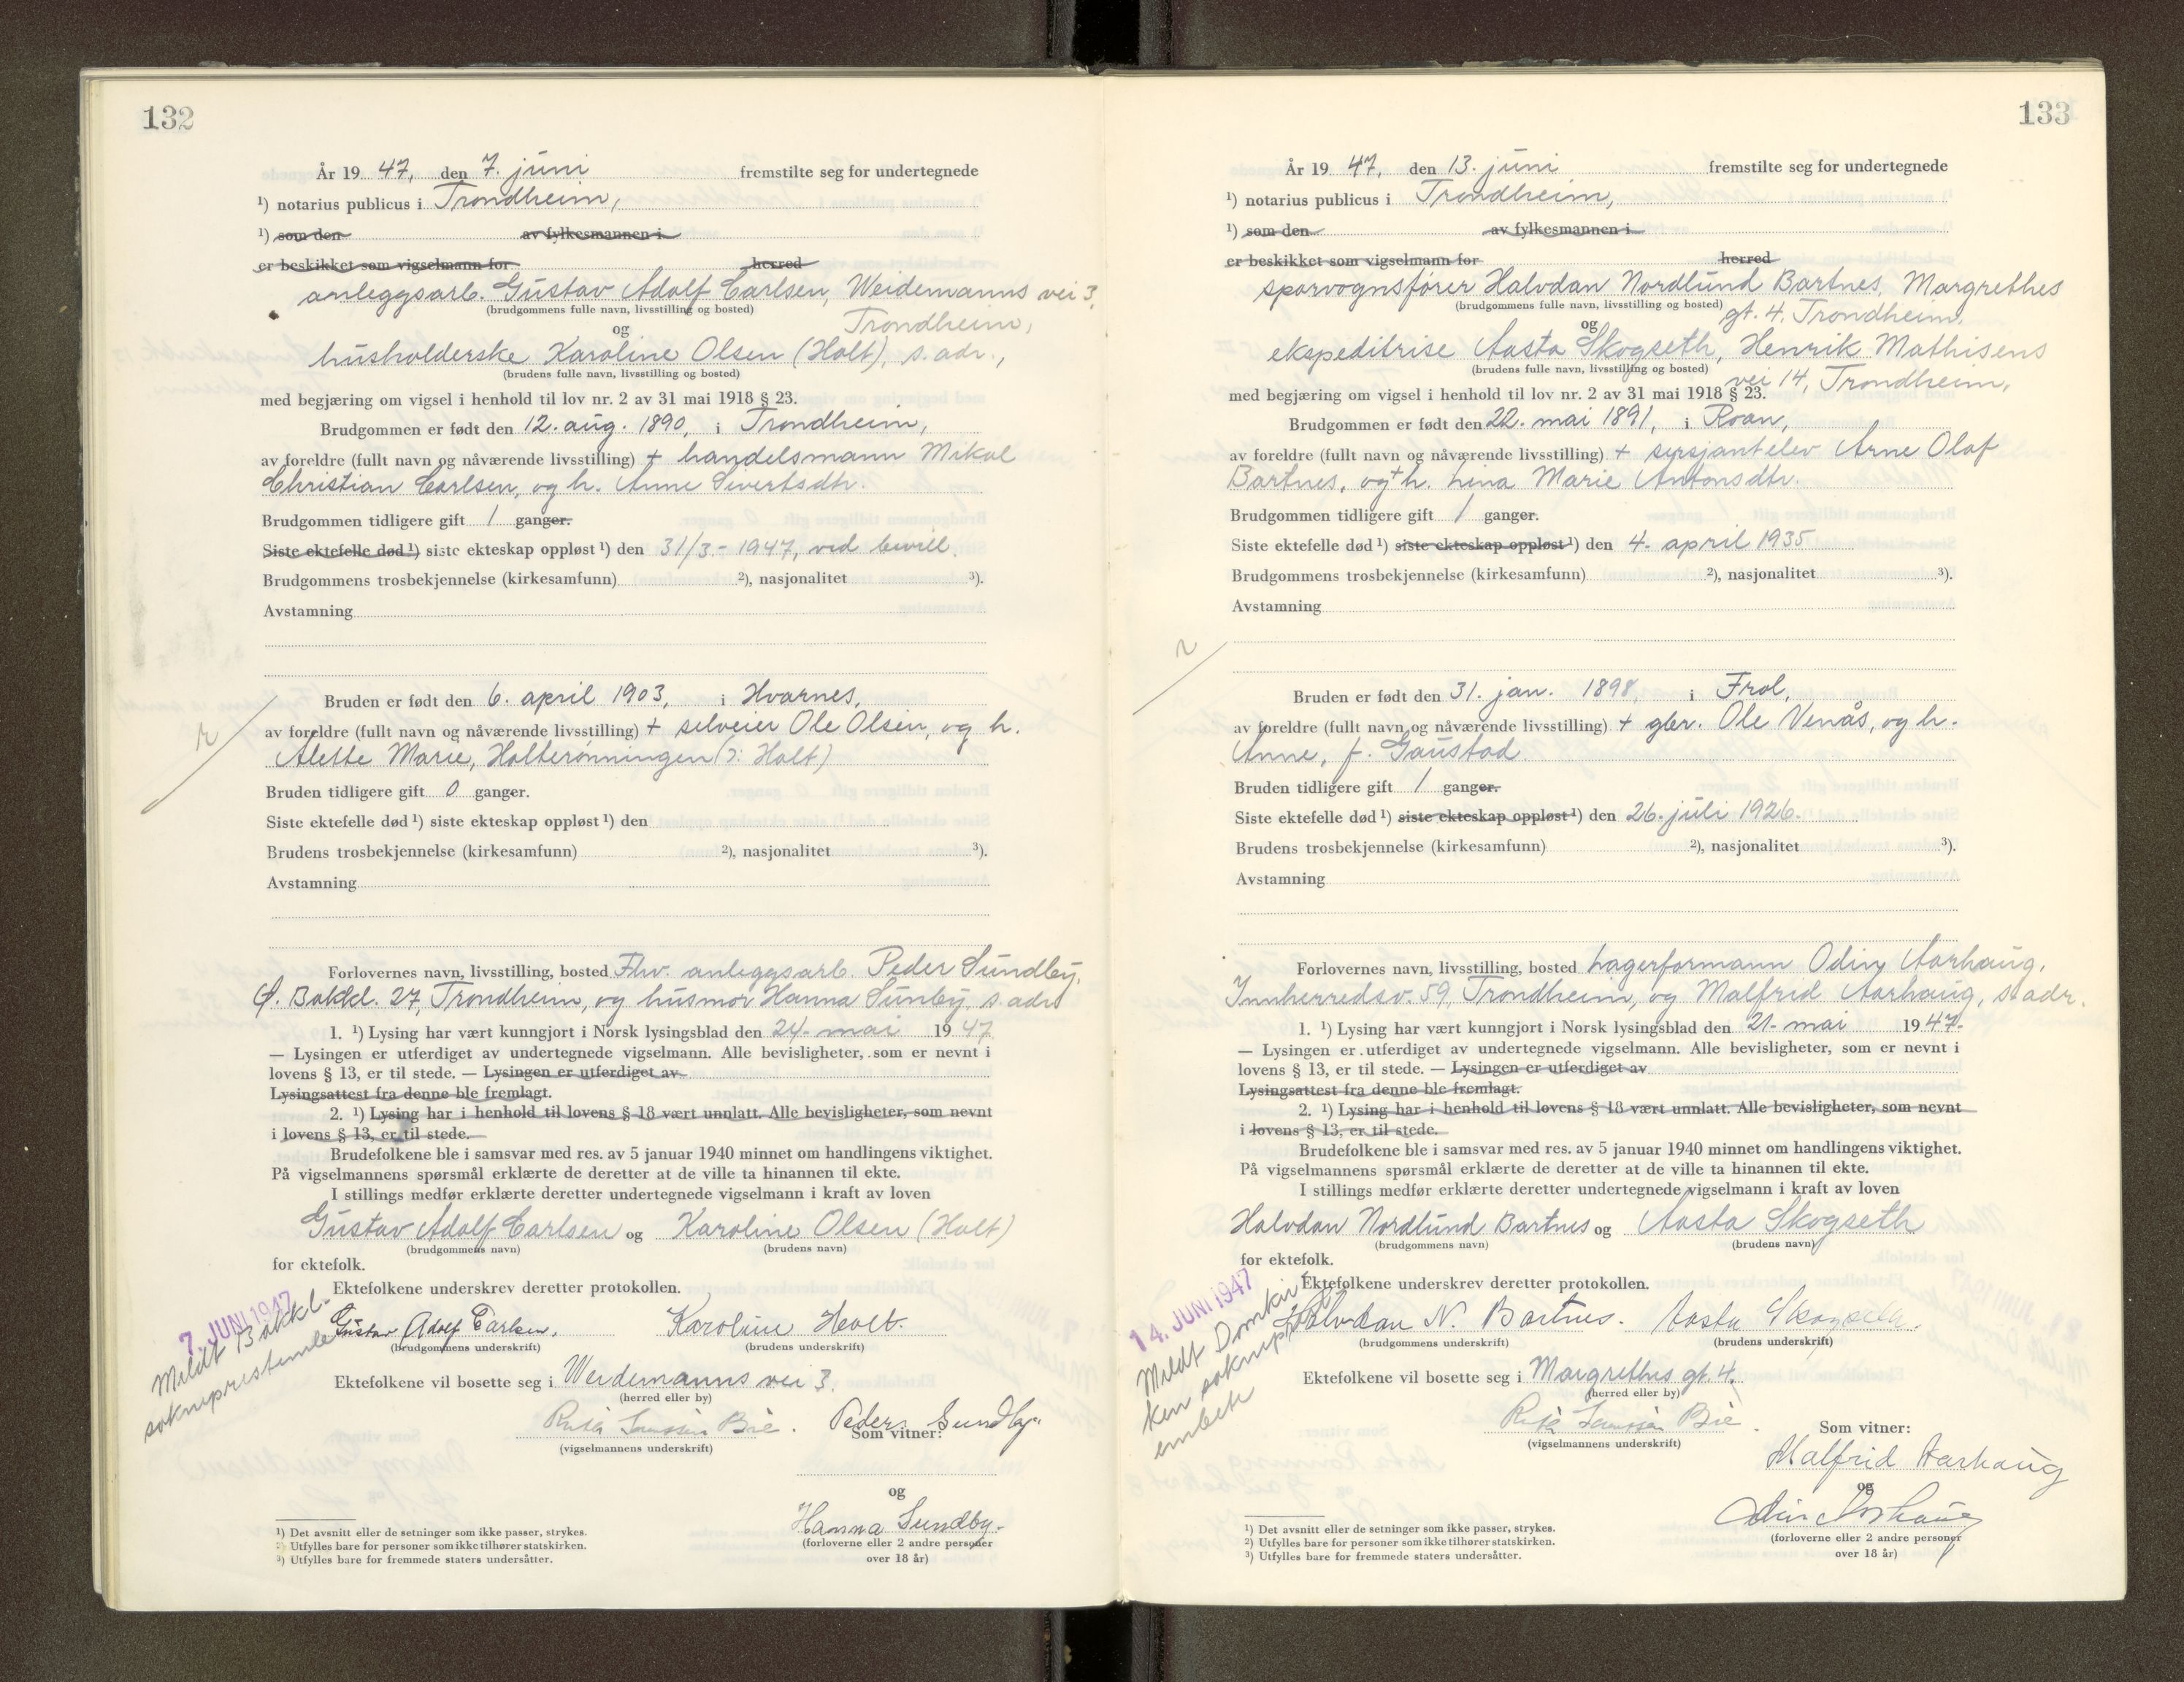 132
År 19 47, den 7. juni fremstilte seg for undertegnede
¹) notarius publicus i Trondheim,
¹) som den av fylkesmannen i
er beskikket som vigselmann for herred
anleggsarb. Gustav Adolf Carlsen, Weidemanns vei 3,
(brudgommens fulle navn, livsstilling og bosted)
Trondheim,
og
husholderske Karoline Olsen (Holt), s. adr.,
(brudens fulle navn, livsstilling og bosted)
med begjæring om vigsel i henhold til lov nr. 2 av 31 mai 1918 § 23.
Brudgommen er født den 12. aug. 1890, i Trondheim,
av foreldre (fullt navn og nåværende livsstilling) + handelsmann Mikal
Christian Carlsen, og h. Anne Sivertsdtr.
Brudgommen tidligere gift 1 ganger.
Siste ektefelle død ¹) siste ekteskap oppløst ¹) den 31/3 - 1947, ved bevill.
Brudgommens trosbekjennelse (kirkesamfunn) ²), nasjonalitet ³).
Avstamning
Bruden er født den 6. april 1903, i Hvarnes,
av foreldre (fullt navn og nåværende livsstilling) + selveier Ole Olsen, og h.
Alette Marie, Holterønningen (ɔ: Holt)
Bruden tidligere gift 0 ganger.
Siste ektefelle død ¹) siste ekteskap oppløst ¹) den
Brudens trosbekjennelse (kirkesamfunn) ²), nasjonalitet ³).
Avstamning
Forlovernes navn, livsstilling, bosted Fhv. anleggsarb. Peder Sundby,
Ø. Bakkl. 27, Trondheim, og husmor Hanna Sunby, s. adr.
1. ¹) Lysing har vært kunngjort i Norsk lysingsblad den 24. mai 19 47
— Lysingen er utferdiget av undertegnede vigselmann. Alle bevisligheter, som er nevnt i
lovens § 13, er til stede. — Lysingen er utferdiget av
Lysingsattest fra denne ble fremlagt.
2. ¹) Lysing har i henhold til lovens § 18 vært unnlatt. Alle bevisligheter, som nevnt
i lovens § 13, er til stede.
Brudefolkene ble i samsvar med res. av 5 januar 1940 minnet om handlingens viktighet.
På vigselmannens spørsmål erklærte de deretter at de ville ta hinannen til ekte.
I stillings medfør erklærte deretter undertegnede vigselmann i kraft av loven
Gustav Adolf Carlsen og Karoline Olsen (Holt)
(brudgommens navn) (brudens navn)
for ektefolk.
Ektefolkene underskrev deretter protokollen.
7. JUNI 1947
Meldt Bakkl.
sokneprestemb.
Gustav Adolf Carlsen. Karoline Holt.
(brudgommens underskrift) (brudens underskrift)
Ektefolkene vil bosette seg i Weidemanns vei 3.
(herred eller by)
Bie. Peder Sundby
Som vitner:
(vigselmannens underskrift)
og
Hanna Sundby.
(forloverne eller 2 andre personer
over 18 år)
¹) Det avsnitt eller de setninger som ikke passer, strykes.
²) Utfylles bare for personer som ikke tilhører statskirken.
³) Utfylles bare for fremmede staters undersåtter.
133
År 19 47, den 13. juni fremstilte seg for undertegnede
¹) notarius publicus i Trondheim,
¹) som den av fylkesmannen i
er beskikket som vigselmann for herred
sporvognsfører Halvdan Nordlund Bartnes, Margrethes
(brudgommens fulle navn, livsstilling og bosted)
gt. 4, Trondheim,
og
ekspeditrise Aasta Skogseth, Henrik Mathisens
(brudens fulle navn, livsstilling og bosted)
vei 14, Trondheim,
med begjæring om vigsel i henhold til lov nr. 2 av 31 mai 1918 § 23.
Brudgommen er født den 22. mai 1891, i Roan,
av foreldre (fullt navn og nåværende livsstilling) + sersjantelev Arne Olaf
Bartnes, og + h. Lina Marie Antonsdtr.
Brudgommen tidligere gift 1 ganger.
Siste ektefelle død ¹) siste ekteskap oppløst ¹) den 4. april 1935
Brudgommens trosbekjennelse (kirkesamfunn) ²), nasjonalitet ³).
Avstamning
Bruden er født den 31. jan. 1898, i Frol,
av foreldre (fullt navn og nåværende livsstilling) + gbr. Ole Venås, og h.
Anne, f. Gaustad
Bruden tidligere gift 1 ganger.
Siste ektefelle død ¹) siste ekteskap oppløst ¹) den 26. juli 1926.
Brudens trosbekjennelse (kirkesamfunn) ²), nasjonalitet ³).
Avstamning
Forlovernes navn, livsstilling, bosted Lagerformann Odin Aarhaug,
Innherredsv. 59, Trondheim, og Malfrid Aarhaug, s. adr.
1. ¹) Lysing har vært kunngjort i Norsk lysingsblad den 21. mai 19 47.
— Lysingen er utferdiget av undertegnede vigselmann. Alle bevisligheter, som er nevnt i
lovens § 13, er til stede. — Lysingen er utferdiget av
Lysingsattest fra denne ble fremlagt.
2. ¹) Lysing har i henhold til lovens § 18 vært unnlatt. Alle bevisligheter, som nevnt
i lovens § 13, er til stede.
Brudefolkene ble i samsvar med res. av 5 januar 1940 minnet om handlingens viktighet.
På vigselmannens spørsmål erklærte de deretter at de ville ta hinannen til ekte.
I stillings medfør erklærte deretter undertegnede vigselmann i kraft av loven
Halvdan Nordlund Bartnes og Aasta Skogseth
(brudgommens navn) (brudens navn)
for ektefolk.
Ektefolkene underskrev deretter protokollen.
14. JUNI 1947
Meldt Domkir
ken sokneprest
embete
Halvdan N. Bartnes. Aasta Skogseth.
(brudgommens underskrift) (brudens underskrift)
Ektefolkene vil bosette seg i Margrethes gt. 4.
(herred eller by)
Bie
(vigselmannens underskrift)
Som vitner:
Malfrid Aarhaug
og
Odin Aarhaug
(forloverne eller 2 andre personer
over 18 år)
¹) Det avsnitt eller de setninger som ikke passer, strykes.
²) Utfylles bare for personer som ikke tilhører statskirken.
³) Utfylles bare for fremmede staters undersåtter.